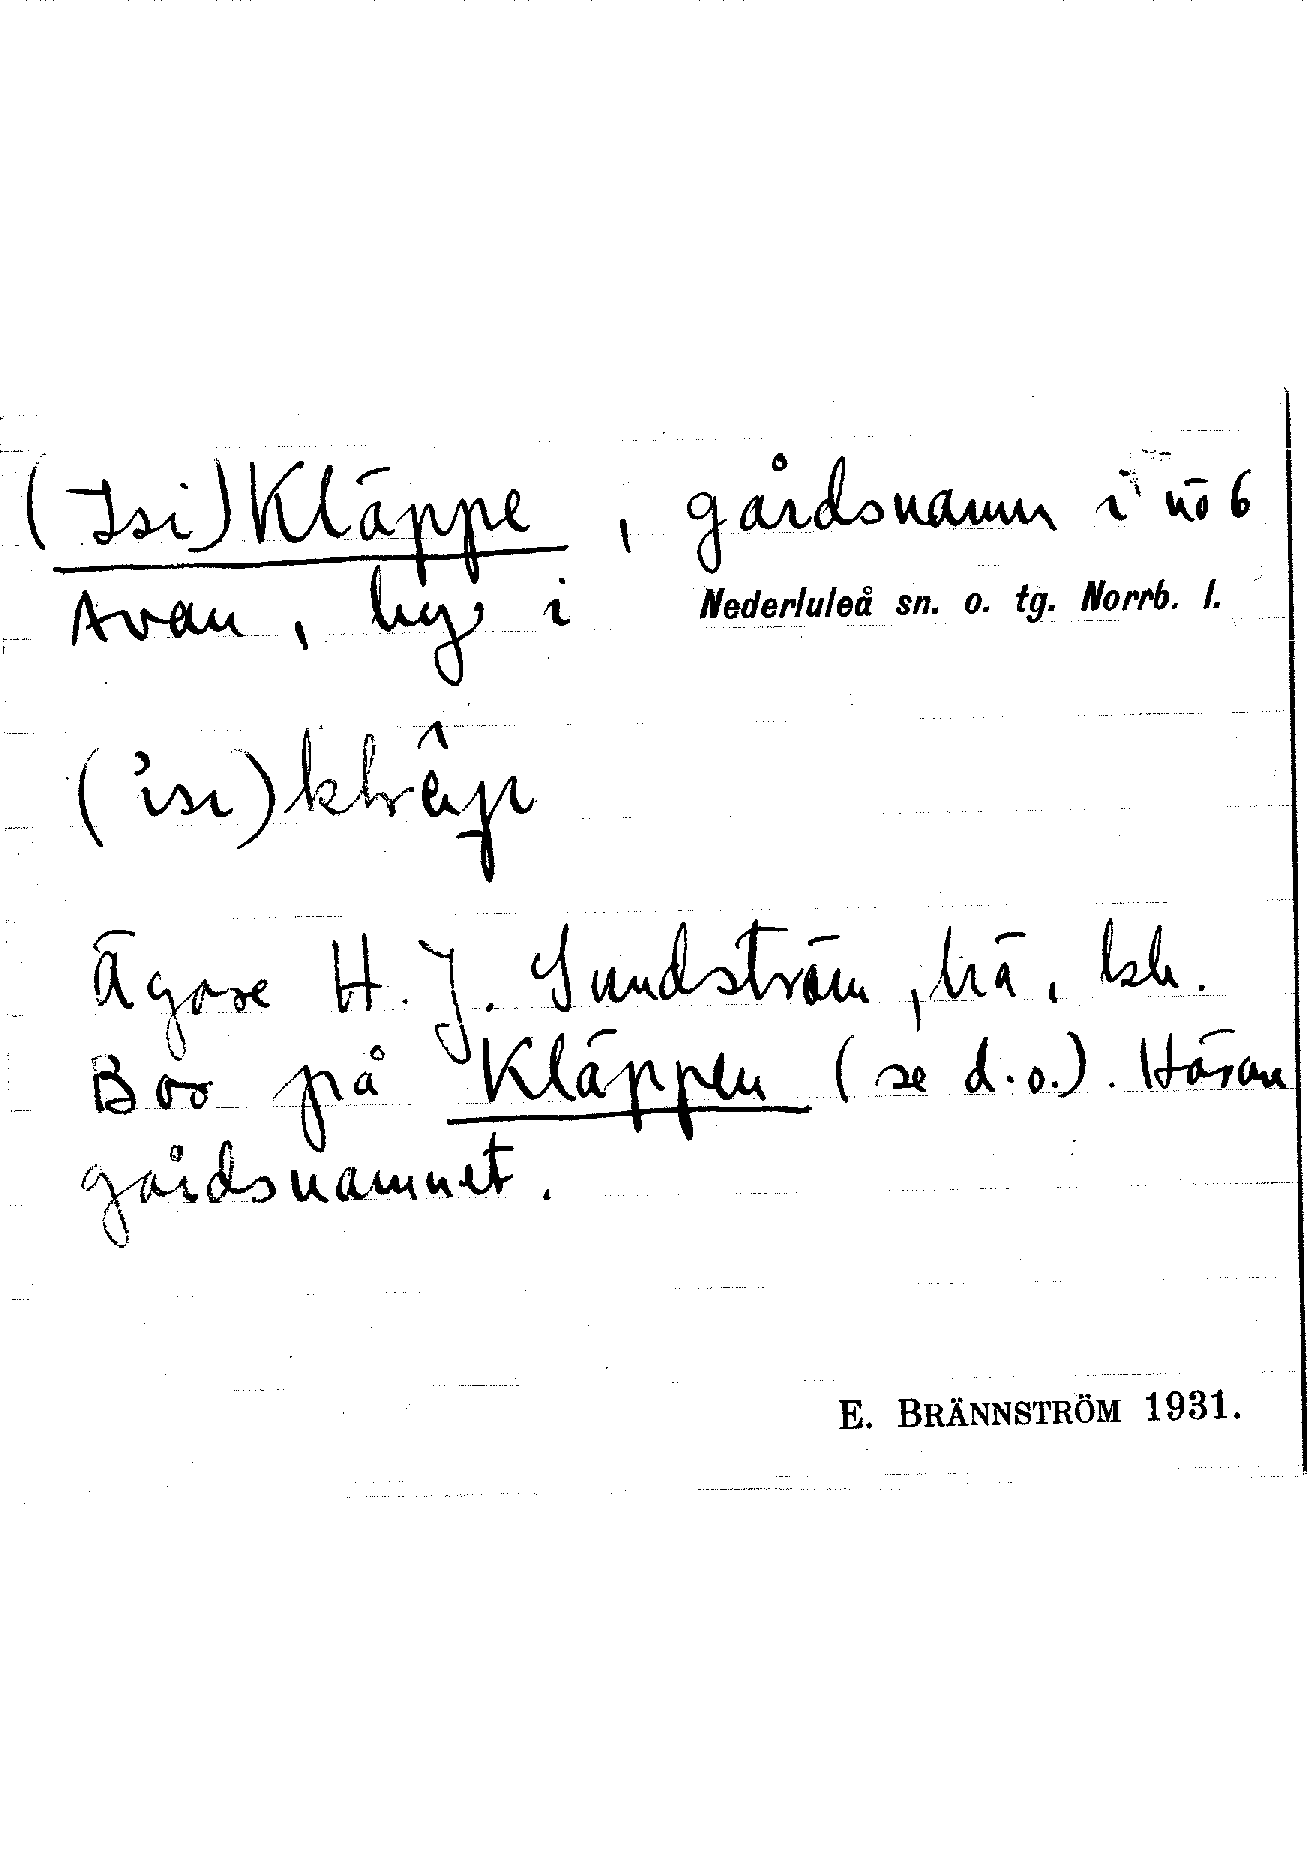 (Isi)Kläppe, gårdsnamn i nö 6
Avan, by i Nederluleå sn. o. tg. Norrb. l.
Ägare H. J. Sundström, hä, kh.
Bor på Kläppen (se d.o.). Härav
gårdsnamnet.
E. BRÄNNSTRÖM 1931.